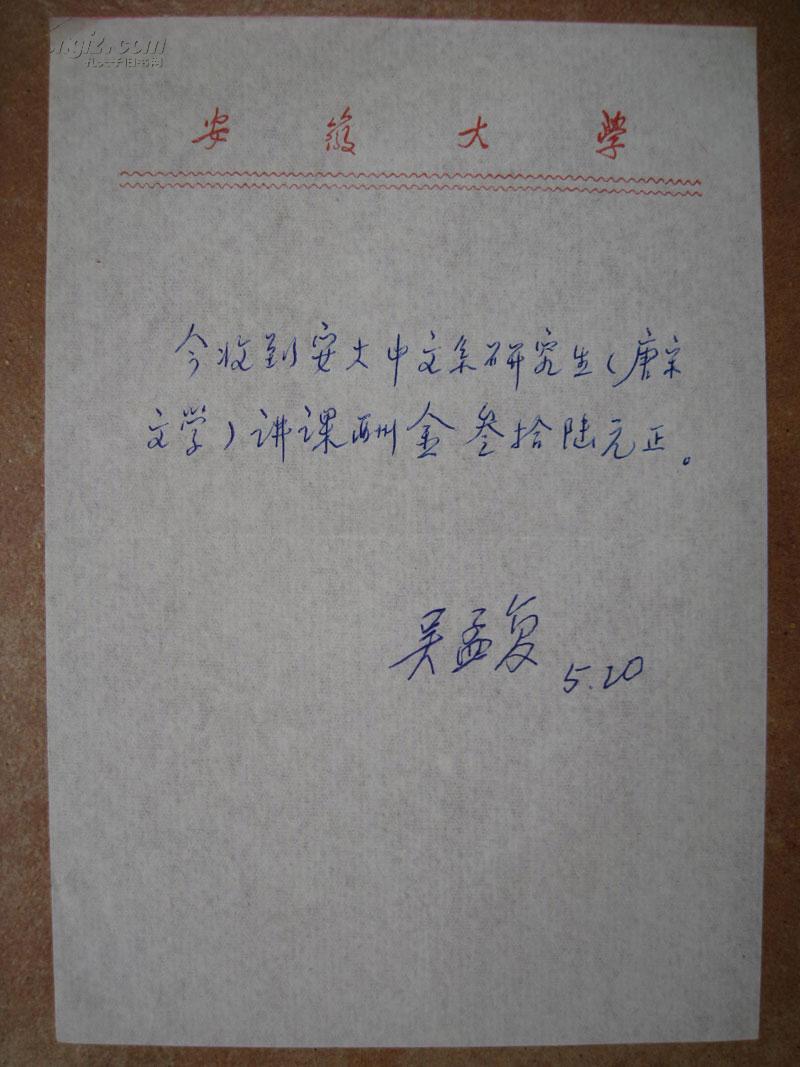 安徽大學
今收到安大中文系研究生(唐宋
文学)讲课酬金叁拾陆元正。
吴孟复
5.20